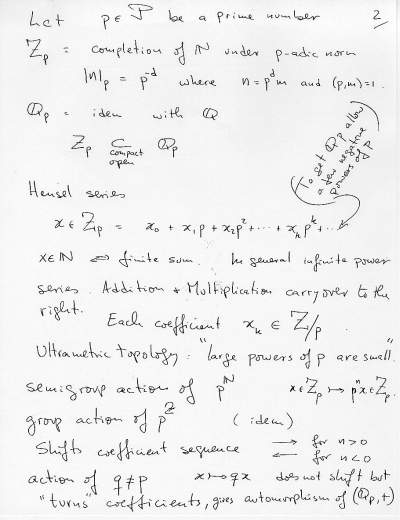 Let p ∈ P be a prime number
2
Z_p = completion of N under p-adic norm
|n|_p = p^{-d} where n = p^d m and (p,m)=1.
Q_p = idem with Q
Z_p ⊂ Q_p
compact
open
To get Q_p allow
a few negative
powers of p
Hensel series
x ∈ Z_p = x_0 + x_1 p + x_2 p^2 + ··· + x_k p^k + ...
x ∈ N ⇔ finite sum. In general infinite power
series. Addition & Multiplication carry over to the
right.
Each coefficient x_k ∈ Z/p.
Ultrametric topology: "large powers of p are small."
semigroup action of p^N x ∈ Z_p ↦ p^n x ∈ Z_p.
group action of p^Z (idem)
Shifts coefficient sequence → for n>0
← for n<0
action of q≠p x ↦ qx does not shift but
"turns" coefficients, gives automorphism of (Q_p,+)